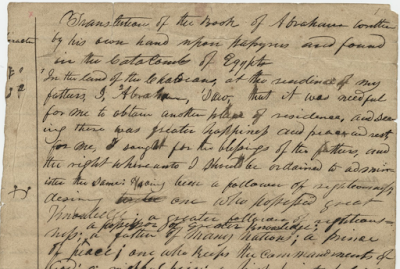 Translation of the Book of Abraham written
by his own hand upon papyrus and found
in the CataCombs of Egypt
In the land of the Chaldeans, at the residence of my
fathers, I, Abraham, Saw, that it was needful
for me to obtain another place of residence, and see
ing there was greater happiness and peace and rest
for me, I sought for the blessings of the fathers, and
the right whereunto I should be ordained to admin
ister the same: Having been a follower of righteousness
desiring to be one who possessed great
Knowledge; a greater follower of righteous
ness; a possessor of greater Knowledge;
a father of many nations; a prince
of peace; one who keeps the commandments of
God; a